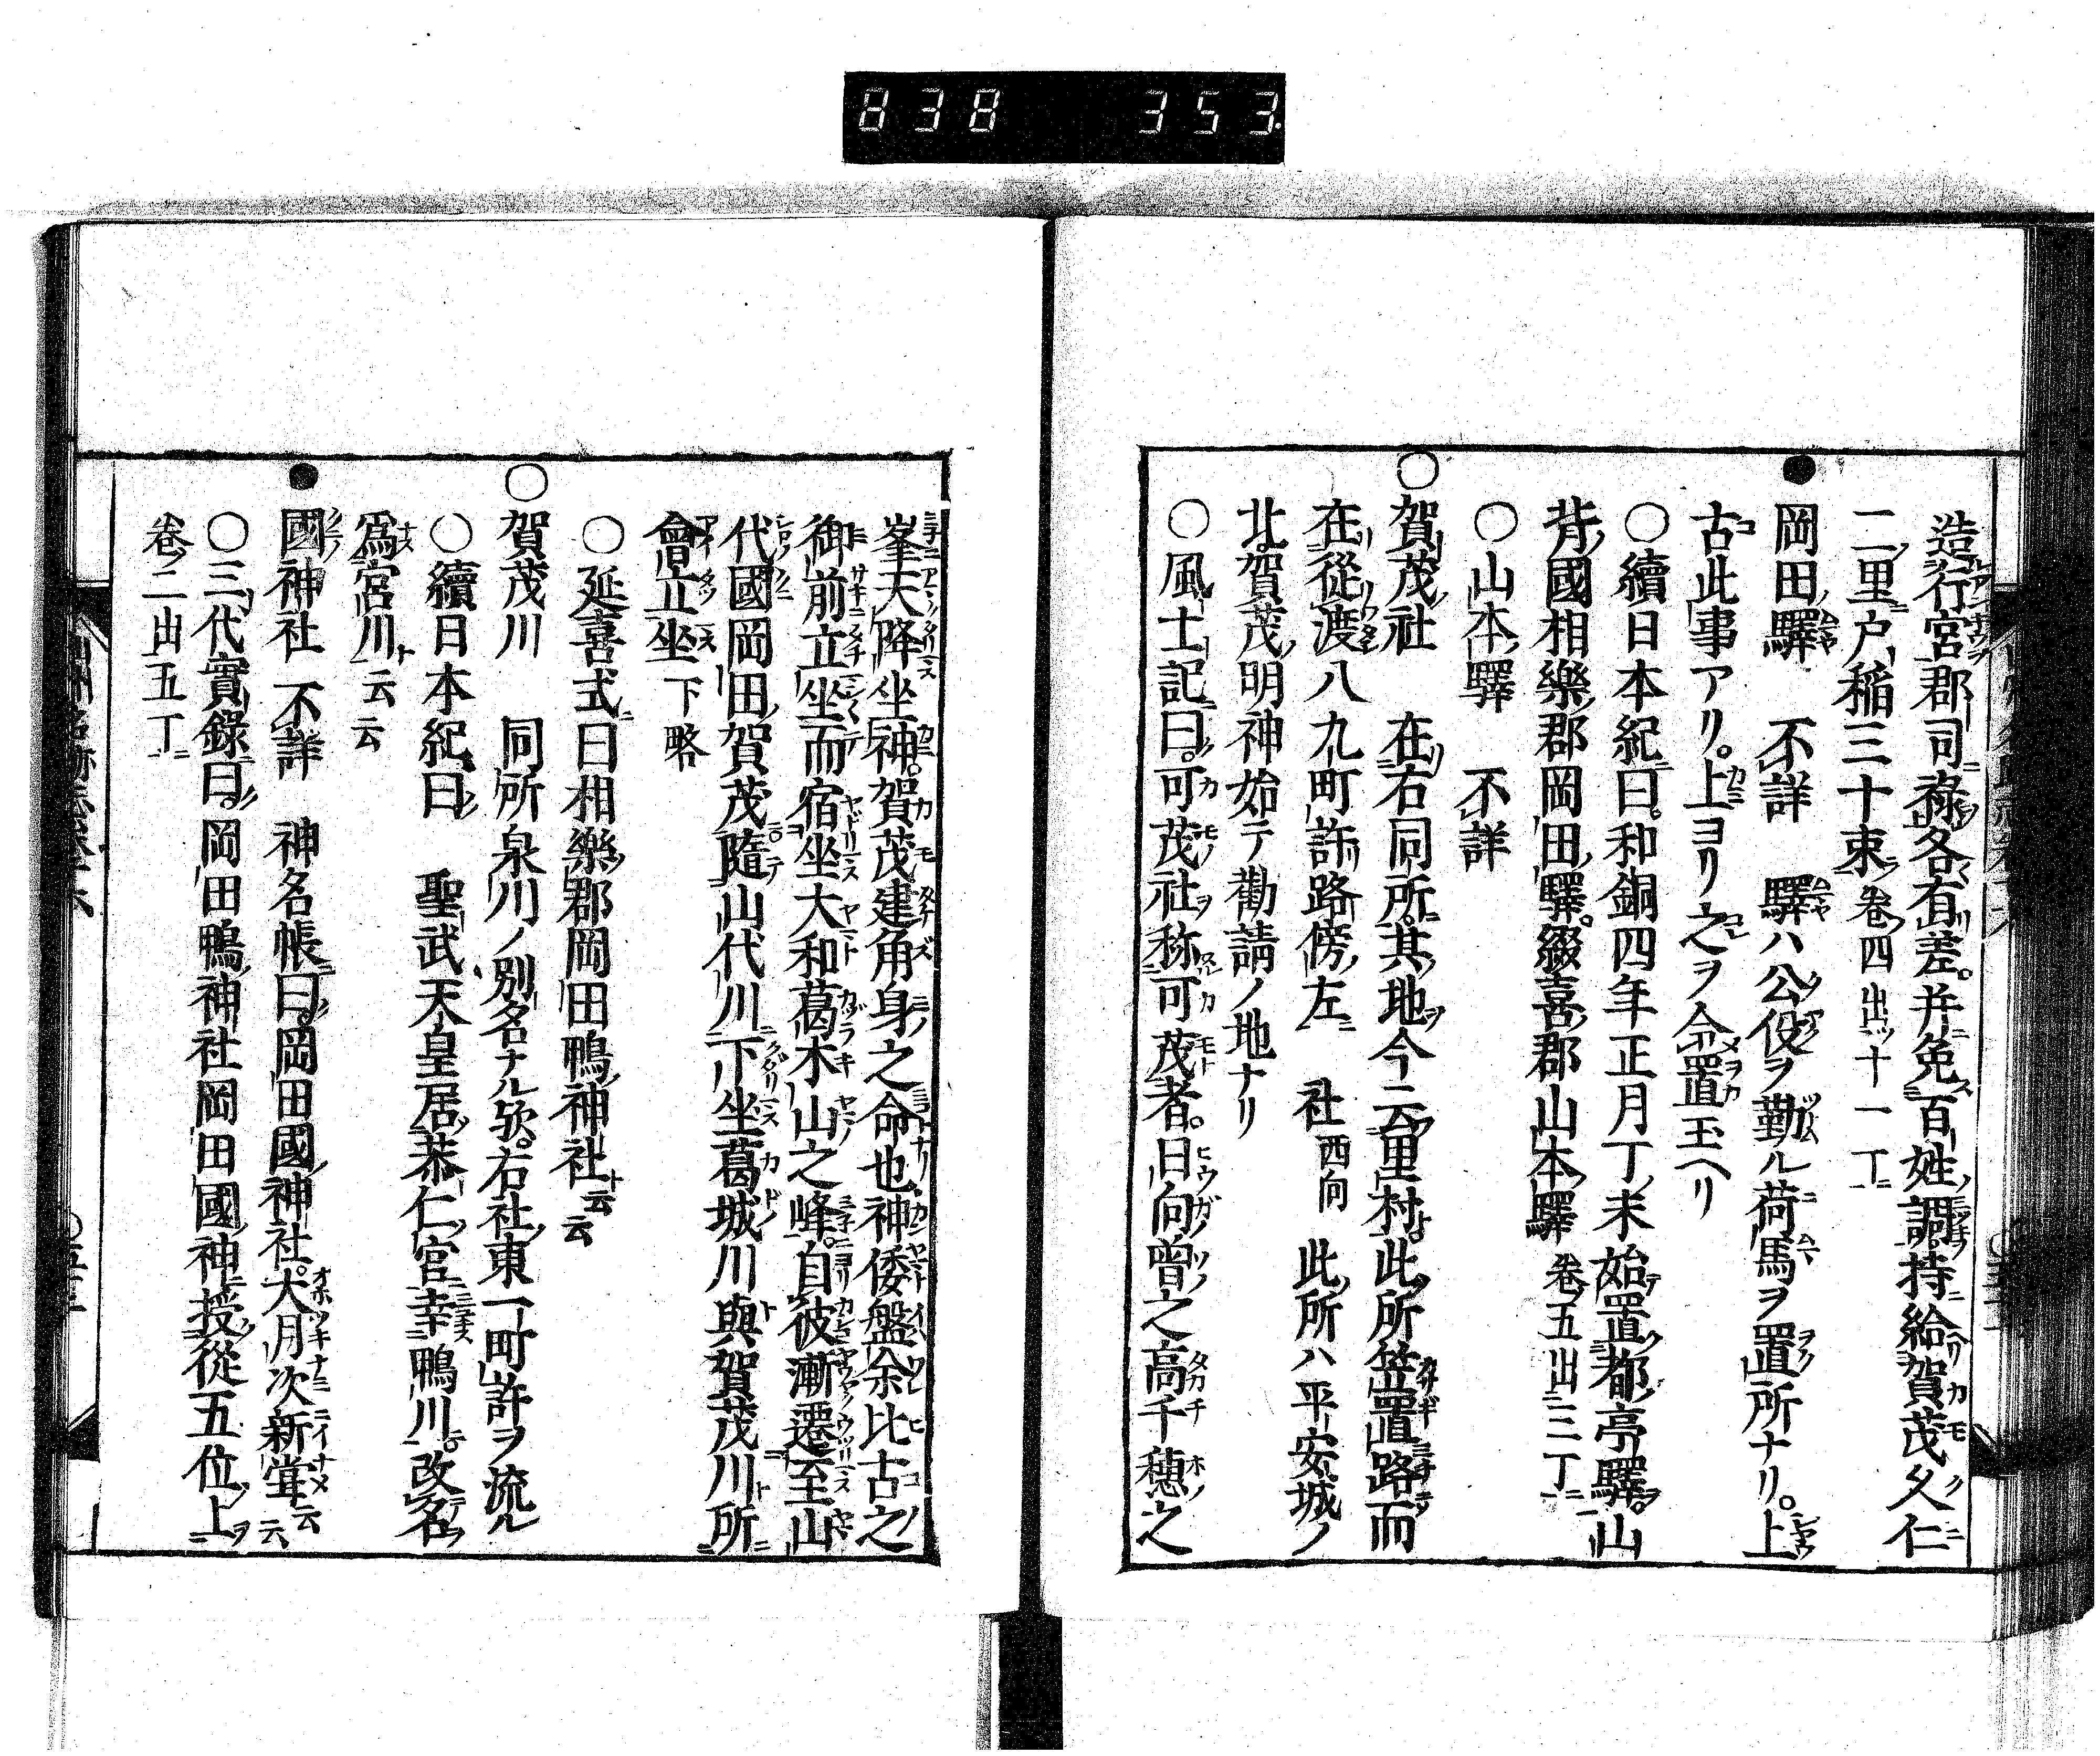 838 353
造行宮郡司禄各有差。并免百姓調。持給賀茂久仁
二里戸稲三十束 卷四出ッ十一丁
●岡田驛 不詳 驛ハ公役ヲ勤ル荷馬ヲ置所ナリ。上
古此事アリ。上ヨリ之ヲ令置玉ヘリ
○續日本紀曰。和銅四年正月丁未始置都亭驛。山
背國相樂郡岡田驛。綴喜郡山本驛 卷五出三丁
○山本驛 不詳
○賀茂社 在右同所。其地今云里村。此所笠置路而
在從渡八九町許路傍左 社西向 此所ハ平安城ノ
北賀茂明神始テ勸請ノ地ナリ
○風土記曰。可茂社称可茂者。日向曾之高千穗之
峯天降坐神。賀茂建角身之命也。神倭盤余比古之
御前立坐而宿坐大和葛木山之峰。自彼漸遷至山
代國岡田賀茂隨山代川下坐葛城川與賀茂川所
會立坐下略
○延喜式曰相樂郡岡田鴨神社云云
○賀茂川 同所泉川ノ別名ナル歟。右社東一町許ヲ流ル
○續日本紀曰 聖武天皇居恭仁宮幸鴨川。改名
爲宮川云云
●國神社 不詳 神名帳曰。岡田國神社。大月次新甞云云
○三代實錄曰。岡田鴨神社岡田國神授從五位上
卷二出五丁